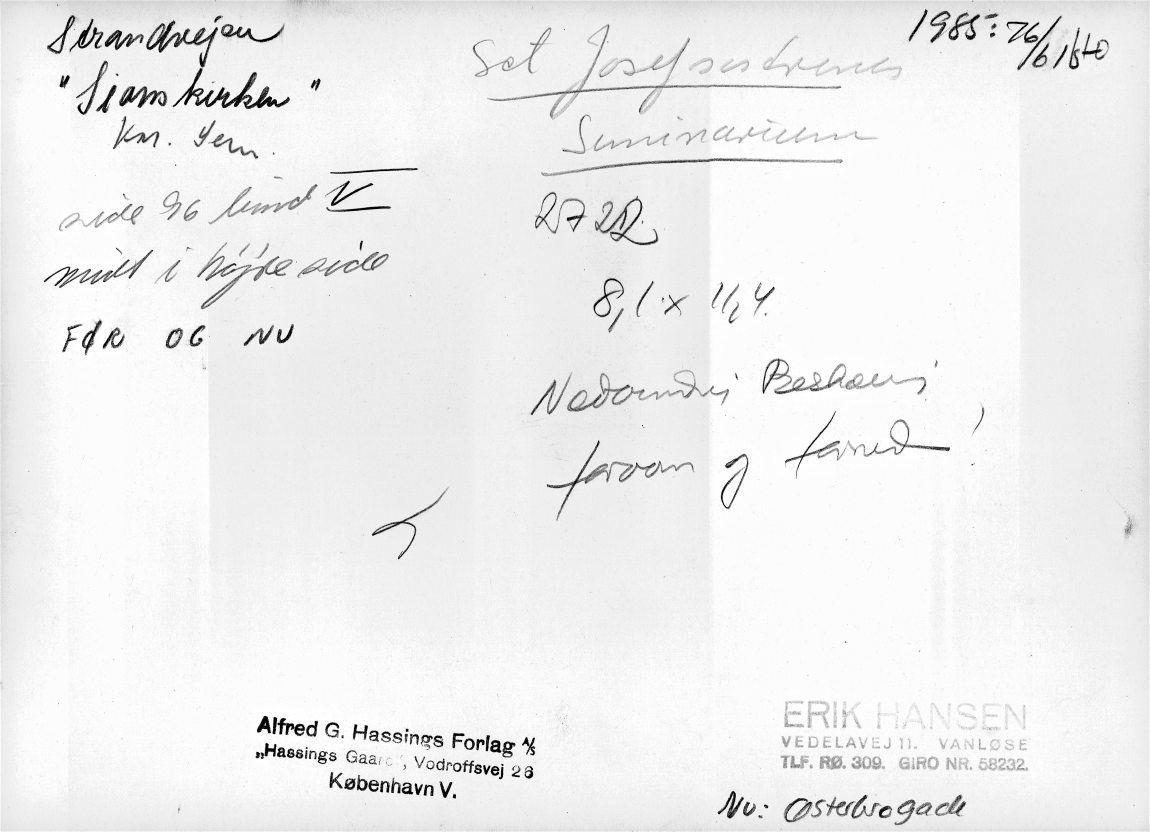 Strandvejen
"Sions kirken"
side 96 bind V
midt i højre side
FØR OG NU
1985: 76/6
Sct Josefsøstrenes
Seminarium
2727
8,1 x 11,4.
foroven og forned
Alfred G. Hassings Forlag A/S
„Hassings Gaard", Vodroffsvej 26
København V.
ERIK HANSEN
VEDELAVEJ 11. VANLØSE
TLF. RØ. 309. GIRO NR. 58232.
Nu: Østerbrogade